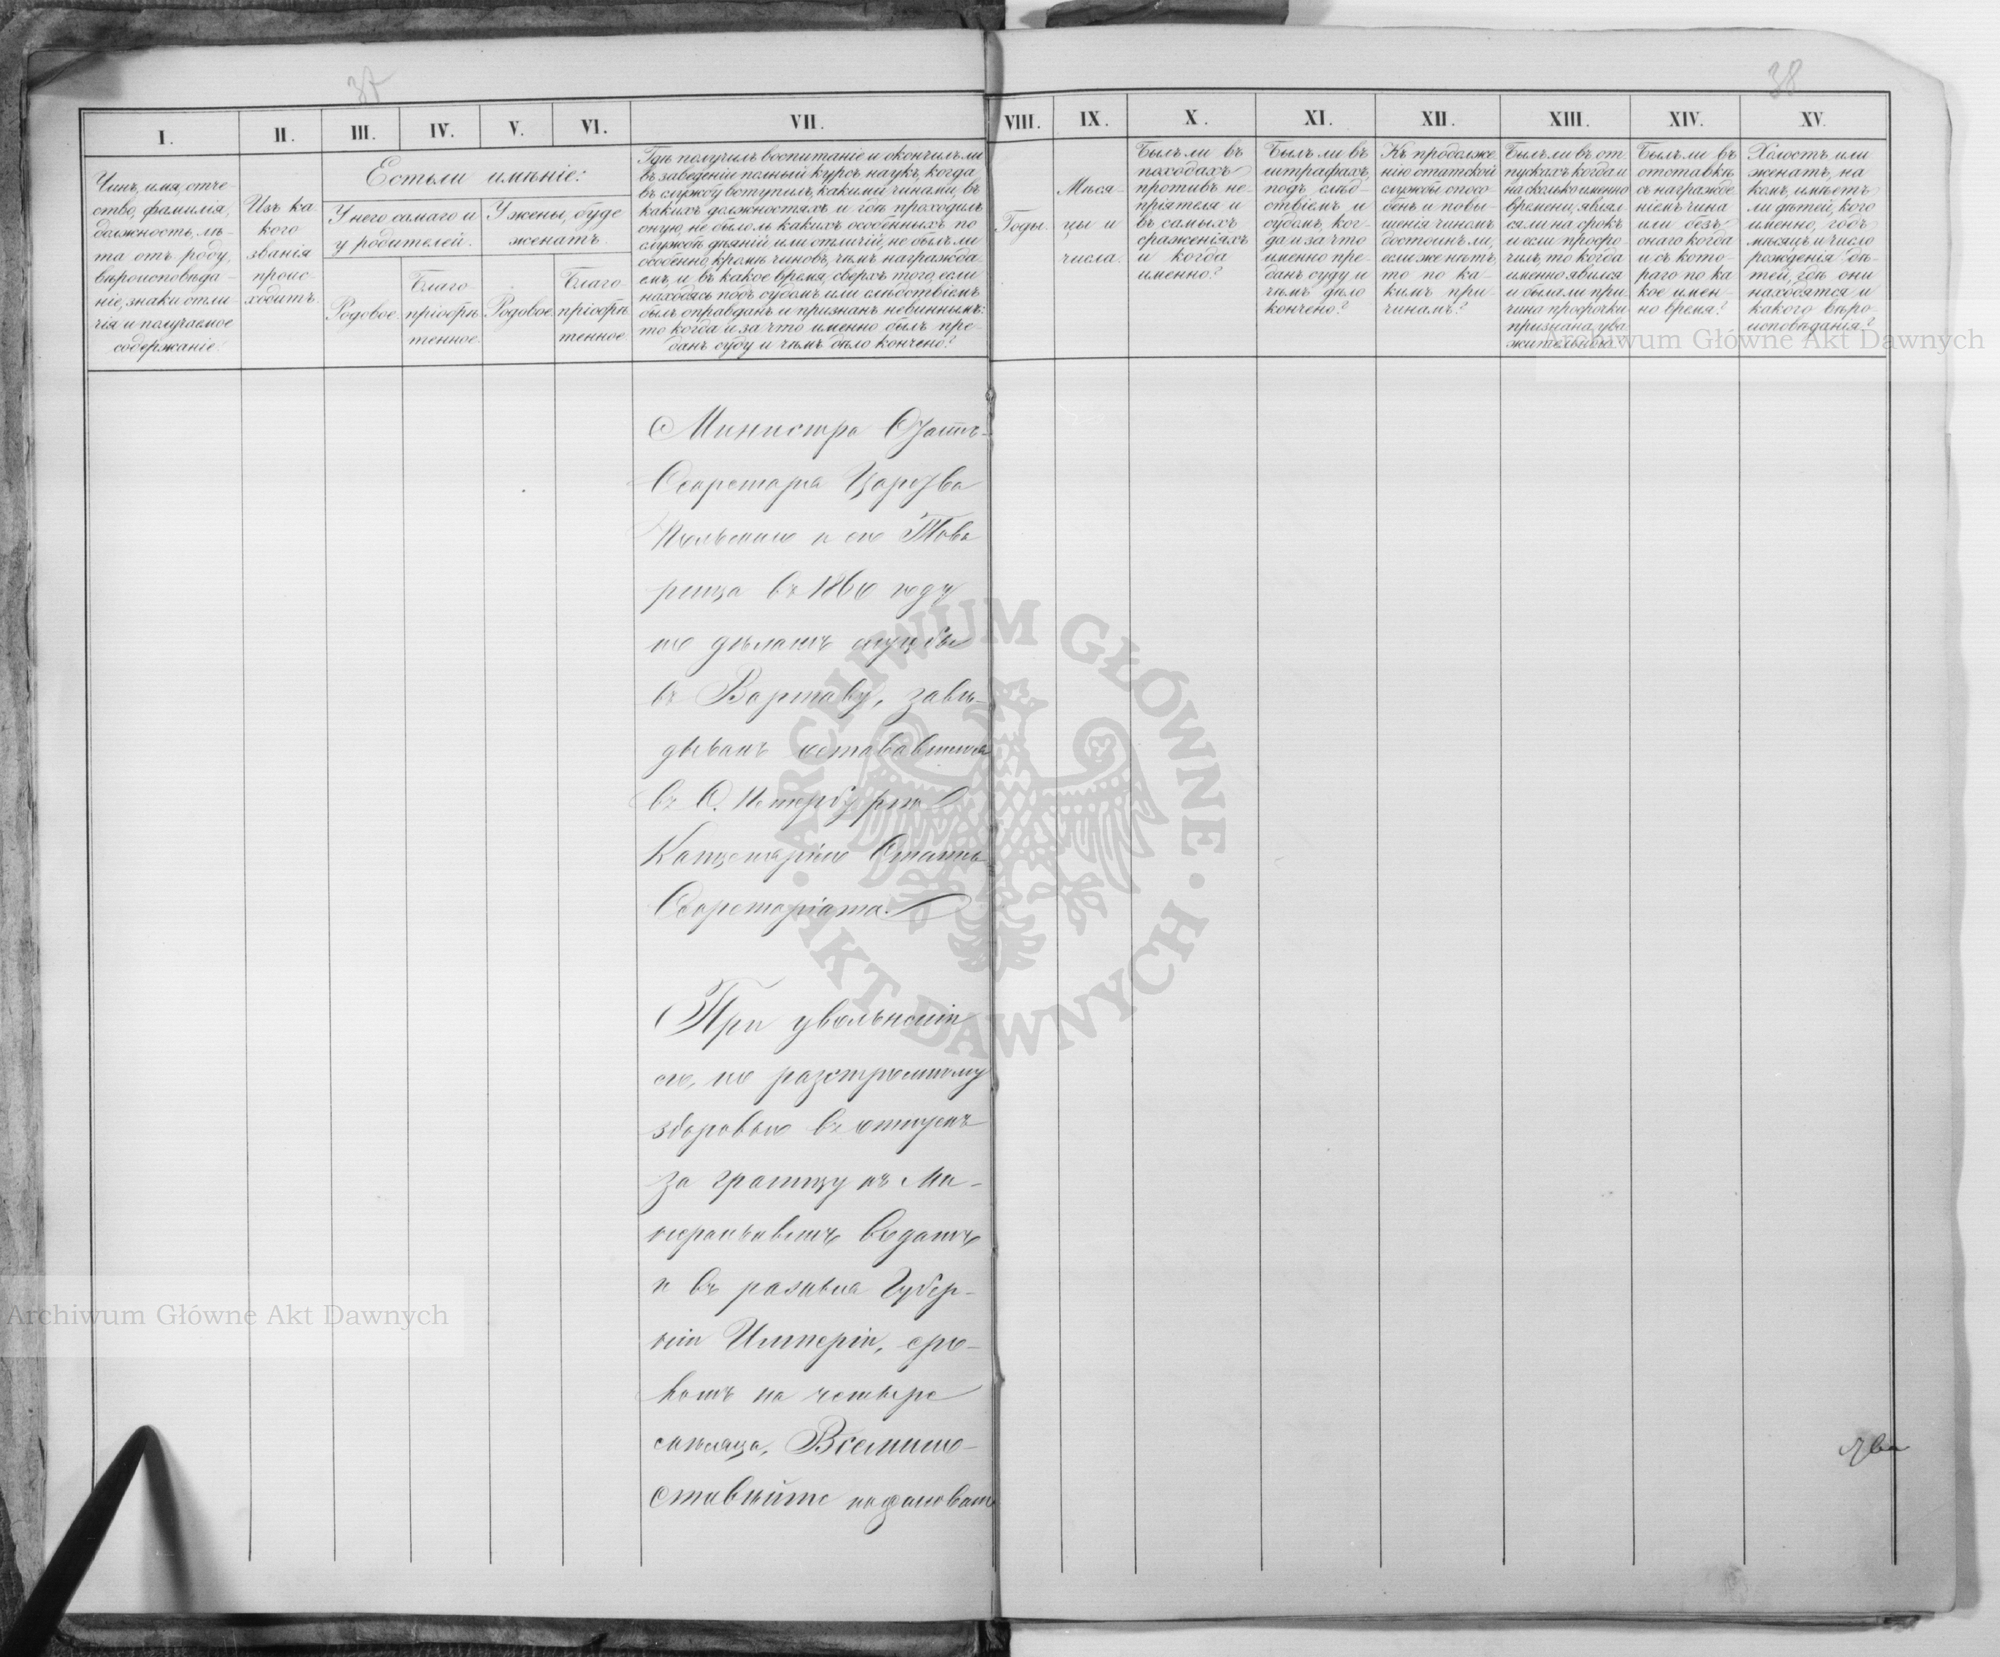 37
38
I.
II.
III.
IV.
V.
VI.
VII.
VIII.
IX.
X.
XI.
XII.
XIII.
XIV.
XV.
Чинъ, имя, отче-
ство, фамилія,
должность, лѣ-
та отъ роду,
вѣроисповѣда-
ніе, знаки отли-
чія и получаемое
содержаніе.
Изъ ка-
кого
званія
проис-
ходитъ.
Есть ли имѣніе:
У него самаго и
у родителей.
У жены, буде
женатъ.
Родовое.
Благо-
пріобрѣ-
тенное.
Родовое.
Благо-
пріобрѣ-
тенное.
Гдѣ получилъ воспитаніе и окончилъ ли
въ заведеніи полный курсъ наукъ, когда
въ службу вступилъ, какими чинами, въ
какихъ должностяхъ и гдѣ проходилъ
оную, не было ль какихъ особенныхъ по
службѣ дѣяній или отличій, не былъ ли
особенно, кромѣ чиновъ, чѣмъ награжда-
емъ, и въ какое время, сверхъ того, если
находясь подъ судомъ или слѣдствіемъ
былъ оправданъ и признанъ невиннымъ:
то когда и за что именно былъ пре-
данъ суду и чѣмъ дѣло кончено?
Годы.
Мѣся-
цы и
числа.
Былъ ли въ
походахъ
противъ не-
пріятеля и
въ самыхъ
сраженіяхъ
и когда
именно?
Былъ ли въ
штрафахъ,
подъ слѣд-
ствіемъ и
судомъ, ког-
да и за что
именно пре-
данъ суду и
чѣмъ дѣло
кончено?
Къ продолже
нію статской
службы спосо-
бенъ и повы-
шенія чиномъ
достоинъ ли,
если же нѣтъ,
то по ка-
кимъ при-
чинамъ?
Былъ ли въ от-
пускахъ когда и
на сколько именно
времени, явил
ся ли на срокъ
и если просро-
чилъ, то когда
именно явился
и была ли при-
чина просрочки
признана ува
жительною?
Былъ ли въ
отставкѣ
съ награжде
ніемъ чина
или безъ
онаго когда
и съ кото-
раго по ка
кое имен-
но время?
Холостъ или
женатъ, на
комъ, имѣетъ
ли дѣтей, кого
именно, годъ
мѣсяцъ и число
рожденія дѣ-
тей, гдѣ они
находятся и
какого вѣро-
исповѣданія?
Министра Статсъ-
Секретаря Царства
Польскаго и его Това
рища въ 1860 году
по дѣламъ службы
въ Варшаву, завѣ-
дывалъ остававшеюся
въ С. Петербургѣ
Канцеляріею Статсъ
Секретаріата.
При увольненіи
его, по разстроенному
здоровью въ отпускъ
за границу къ Ми-
неральнымъ водамъ
и въ разныя Губер-
ніи Имперіи, сро-
комъ на четыре
мѣсяца, Всемило-
стивѣйше пожаловано
Archiwum Główne Akt Dawnych
Archiwum Główne Akt Dawnych
ARCHIWUM GŁÓWNE
AKT DAWNYCH